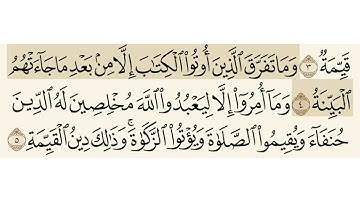 قَيِّمَةٌ ٣ وَمَا تَفَرَّقَ ٱلَّذِينَ أُوتُوا۟ ٱلْكِتَٰبَ إِلَّا مِنۢ بَعْدِ مَا جَآءَتْهُمُ
ٱلْبَيِّنَةُ ٤ وَمَآ أُمِرُوٓا۟ إِلَّا لِيَعْبُدُوا۟ ٱللَّهَ مُخْلِصِينَ لَهُ ٱلدِّينَ
حُنَفَآءَ وَيُقِيمُوا۟ ٱلصَّلَوٰةَ وَيُؤْتُوا۟ ٱلزَّكَوٰةَ ۚ وَذَٰلِكَ دِينُ ٱلْقَيِّمَةِ ٥